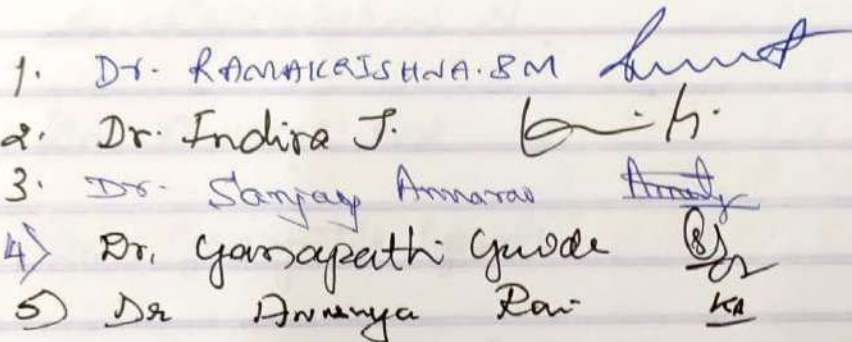 1. Dr. RAMAKRISHNA. SM
2. Dr. Indira J.
3. Dr. Sanjay Annarao
4) Dr. Ganapathi Gwode
5) Dr Annanya Rai KA